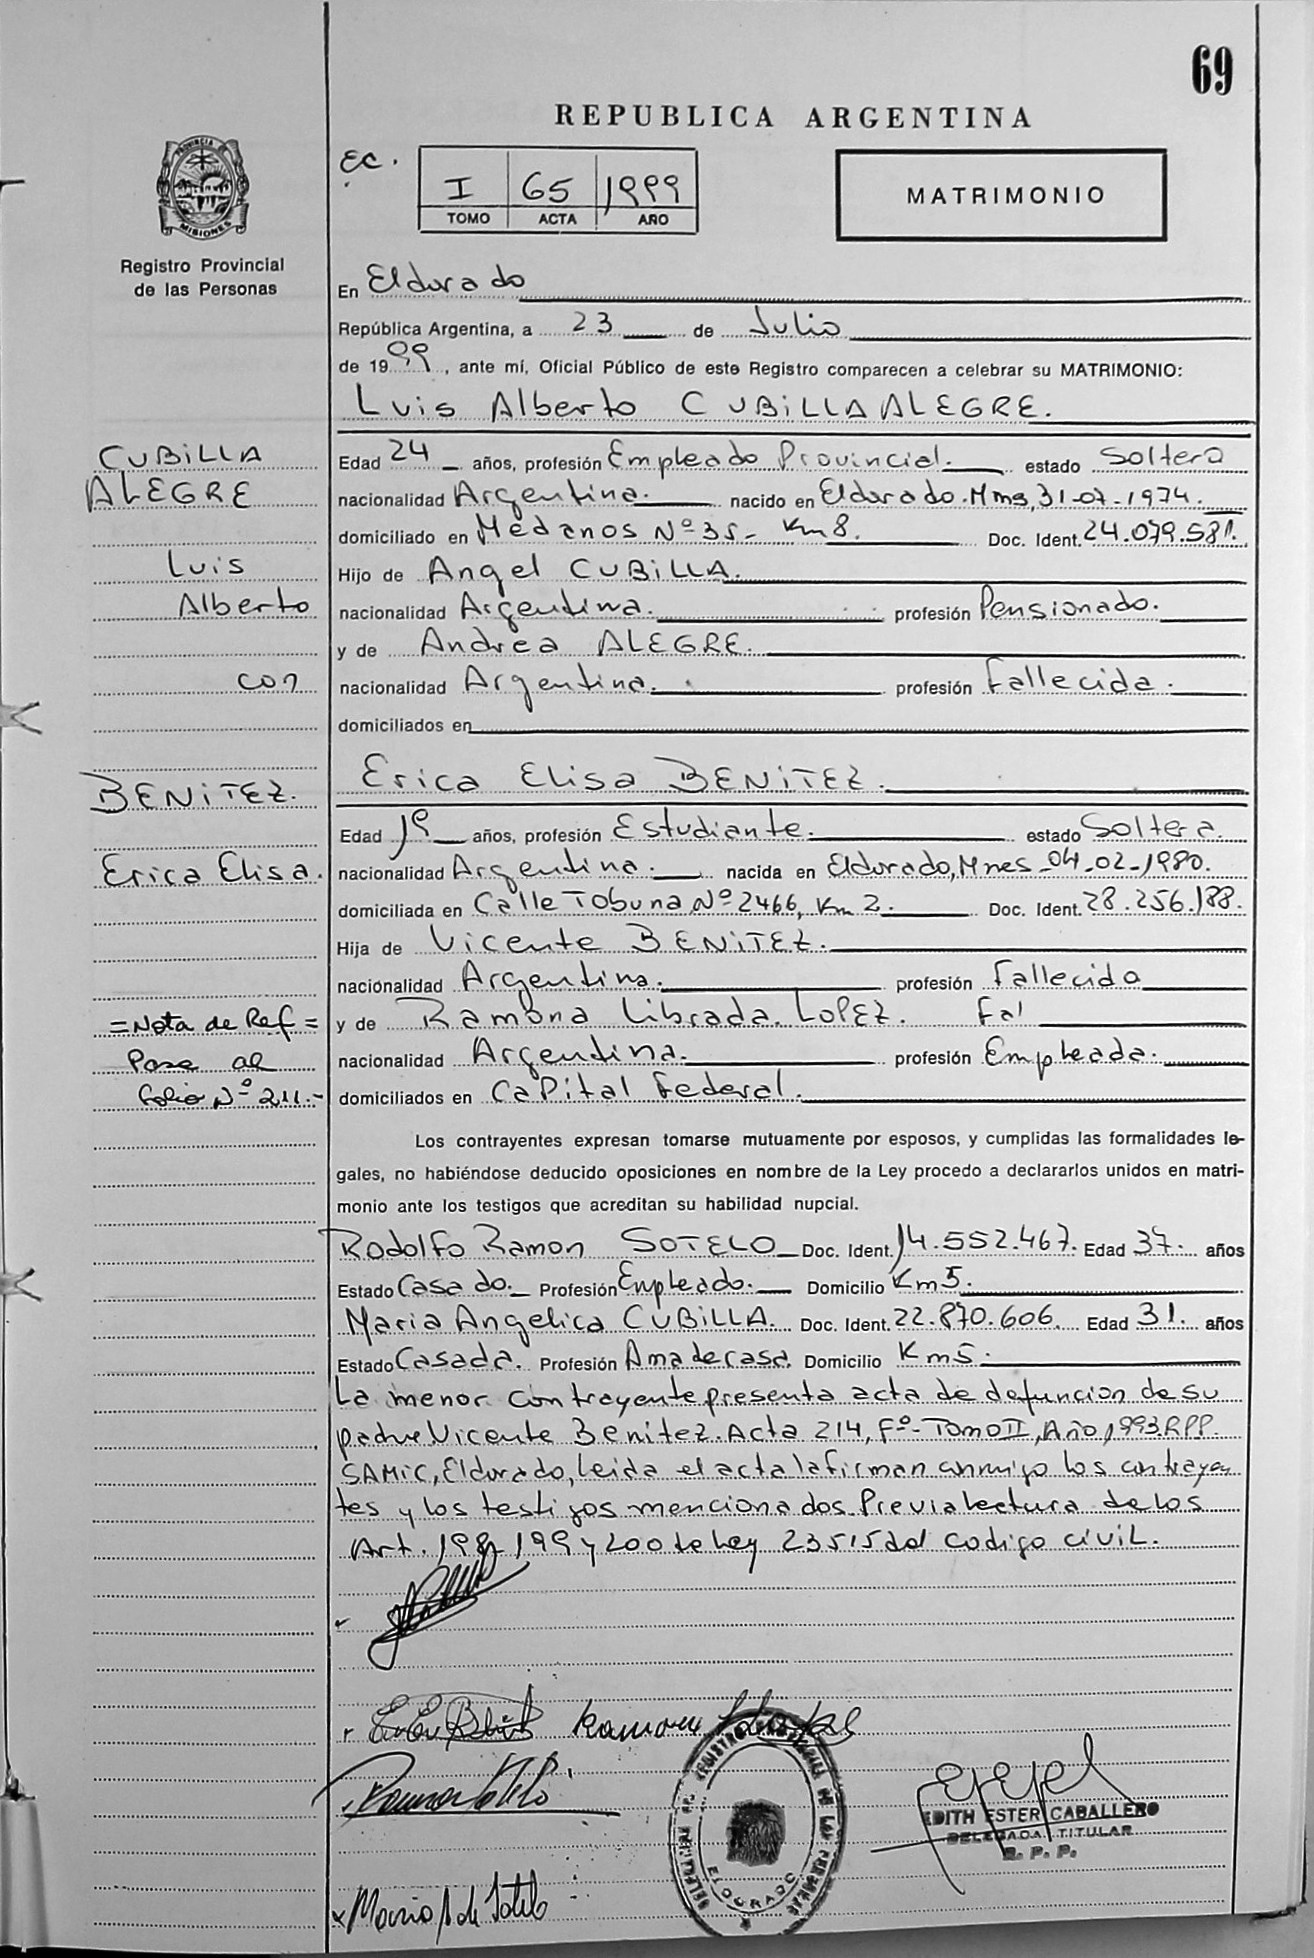 69
REPUBLICA ARGENTINA
EC.
I 65 1999
TOMO ACTA AÑO
MATRIMONIO
PROVINCIA DE
MISIONES
Registro Provincial
de las Personas
En Eldorado
República Argentina, a 23 de Julio
de 1999, ante mí, Oficial Público de este Registro comparecen a celebrar su MATRIMONIO:
Luis Alberto CUBILLA ALEGRE.
CUBILLA
ALEGRE
Luis
Alberto
con
BENITEZ.
Erica Elisa.
=Nota de Ref=
Pasa al
folio Nº 211.-
Edad 24 años, profesión Empleado Provincial. estado Soltero
nacionalidad Argentina. nacido en Eldorado.Mns, 31-07-1974.
domiciliado en Médanos Nº 35- Km 8. Doc. Ident. 24.079.581.
Hijo de Angel CUBILLA.
nacionalidad Argentina. profesión Pensionado.
y de Andrea ALEGRE.
nacionalidad Argentina. profesión Fallecida.
domiciliados en
Erica Elisa BENITEZ.
Edad 19 años, profesión Estudiante. estado Soltera.
nacionalidad Argentina. nacida en Eldorado, Mnes-04-02-1980.
domiciliada en Calle Tobuna Nº 2466, Km 2. Doc. Ident. 28.256.188.
Hija de Vicente BENITEZ.
nacionalidad Argentina. profesión Fallecido
y de Ramona Librada LOPEZ. Fal
nacionalidad Argentina. profesión Empleada.
domiciliados en Capital Federal.
Los contrayentes expresan tomarse mutuamente por esposos, y cumplidas las formalidades le-
gales, no habiéndose deducido oposiciones en nombre de la Ley procedo a declararlos unidos en matri-
monio ante los testigos que acreditan su habilidad nupcial.
Rodolfo Ramon SOTELO Doc. Ident. 14.552.467. Edad 37. años
Estado Casado. Profesión Empleado. Domicilio Km 5.
Maria Angelica CUBILLA. Doc. Ident. 22.870.606. Edad 31. años
Estado Casada. Profesión Ama de casa. Domicilio Km 5.
La menor contrayente presenta acta de defunción de su
padre Vicente Benitez. Acta 214, Fº- Tomo II, Año, 1993. RPP.
SAMIC, Eldorado, leida el acta la firman conmigo los contrayen
tes y los testigos mencionados. Previa lectura de los
Art. 198, 199 y 200 de ley 23515 del codigo civil.
Ramona
Maria A de Sotelo
ELDORADO
EDITH ESTER CABALLERO
DELEGADA TITULAR
R. P. P.